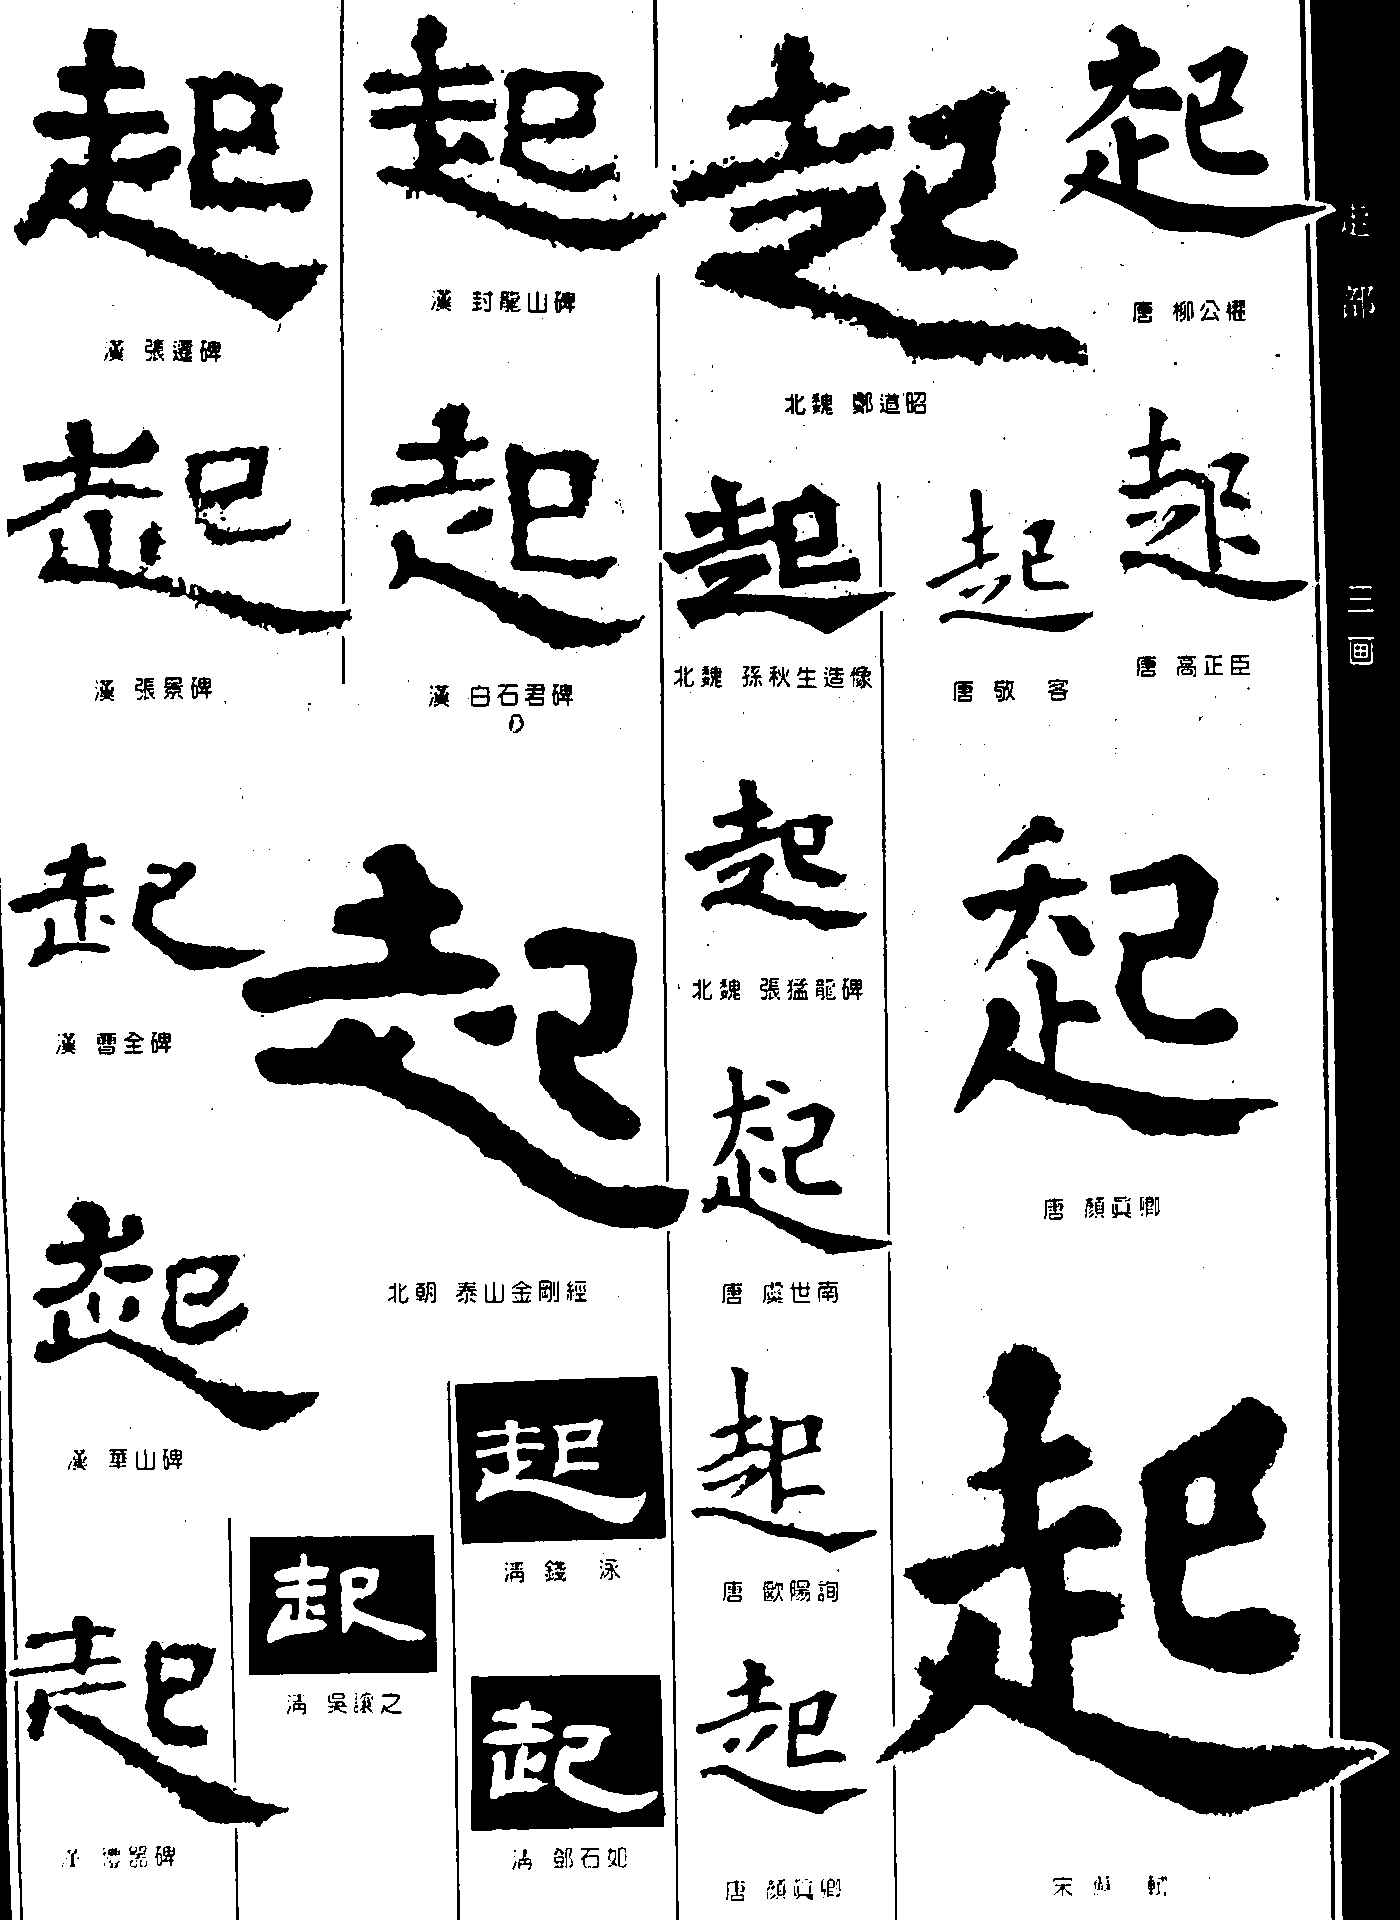 走部
三画
起
唐 柳公權
起
唐 高正臣
起
唐 敬客
起
唐 顏真卿
起
宋 蘇軾
起
北魏 鄭道昭
起
北魏 孫秋生造像
起
北魏 張猛龍碑
起
唐 虞世南
起
唐 歐陽詢
起
唐 顏真卿
起
漢 封龍山碑
起
漢 白石君碑
起
北朝 泰山金剛經
起
清 錢泳
起
清 鄧石如
起
清 吳讓之
起
漢 張遷碑
起
漢 張景碑
起
漢 曹全碑
起
漢 華山碑
起
漢 禮器碑